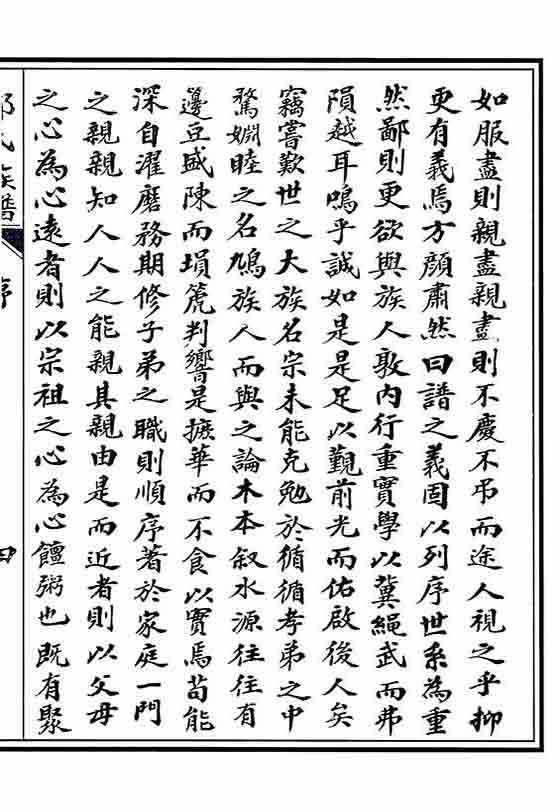 如服盡則親盡親盡則不慶不吊而途人視之乎抑
更有義焉方顔肅然曰譜之義固以列序世系為重
然鄙則更欲與族人敦内行重實學以冀繩武而弗
隕越耳嗚乎誠如是是足以覲前光而佑啟後人矣
竊嘗歎世之大族名宗未能克勉於循循孝弟之中
騖婣睦之名鳩族人而與之論木本叙水源往往有
籩豆盛陳而塤箎判響是摭華而不食以實焉苟能
深自濯磨務期修子弟之職則順序著於家庭一門
之親親知人人之能親其親由是而近者則以父母
之心為心遠者則以宗祖之心為心饘粥也既有聚
氏族譜
序
四